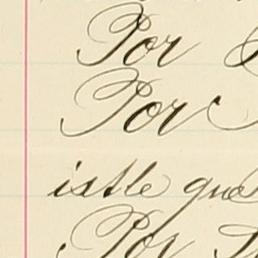 Por
Por
istle que
Por